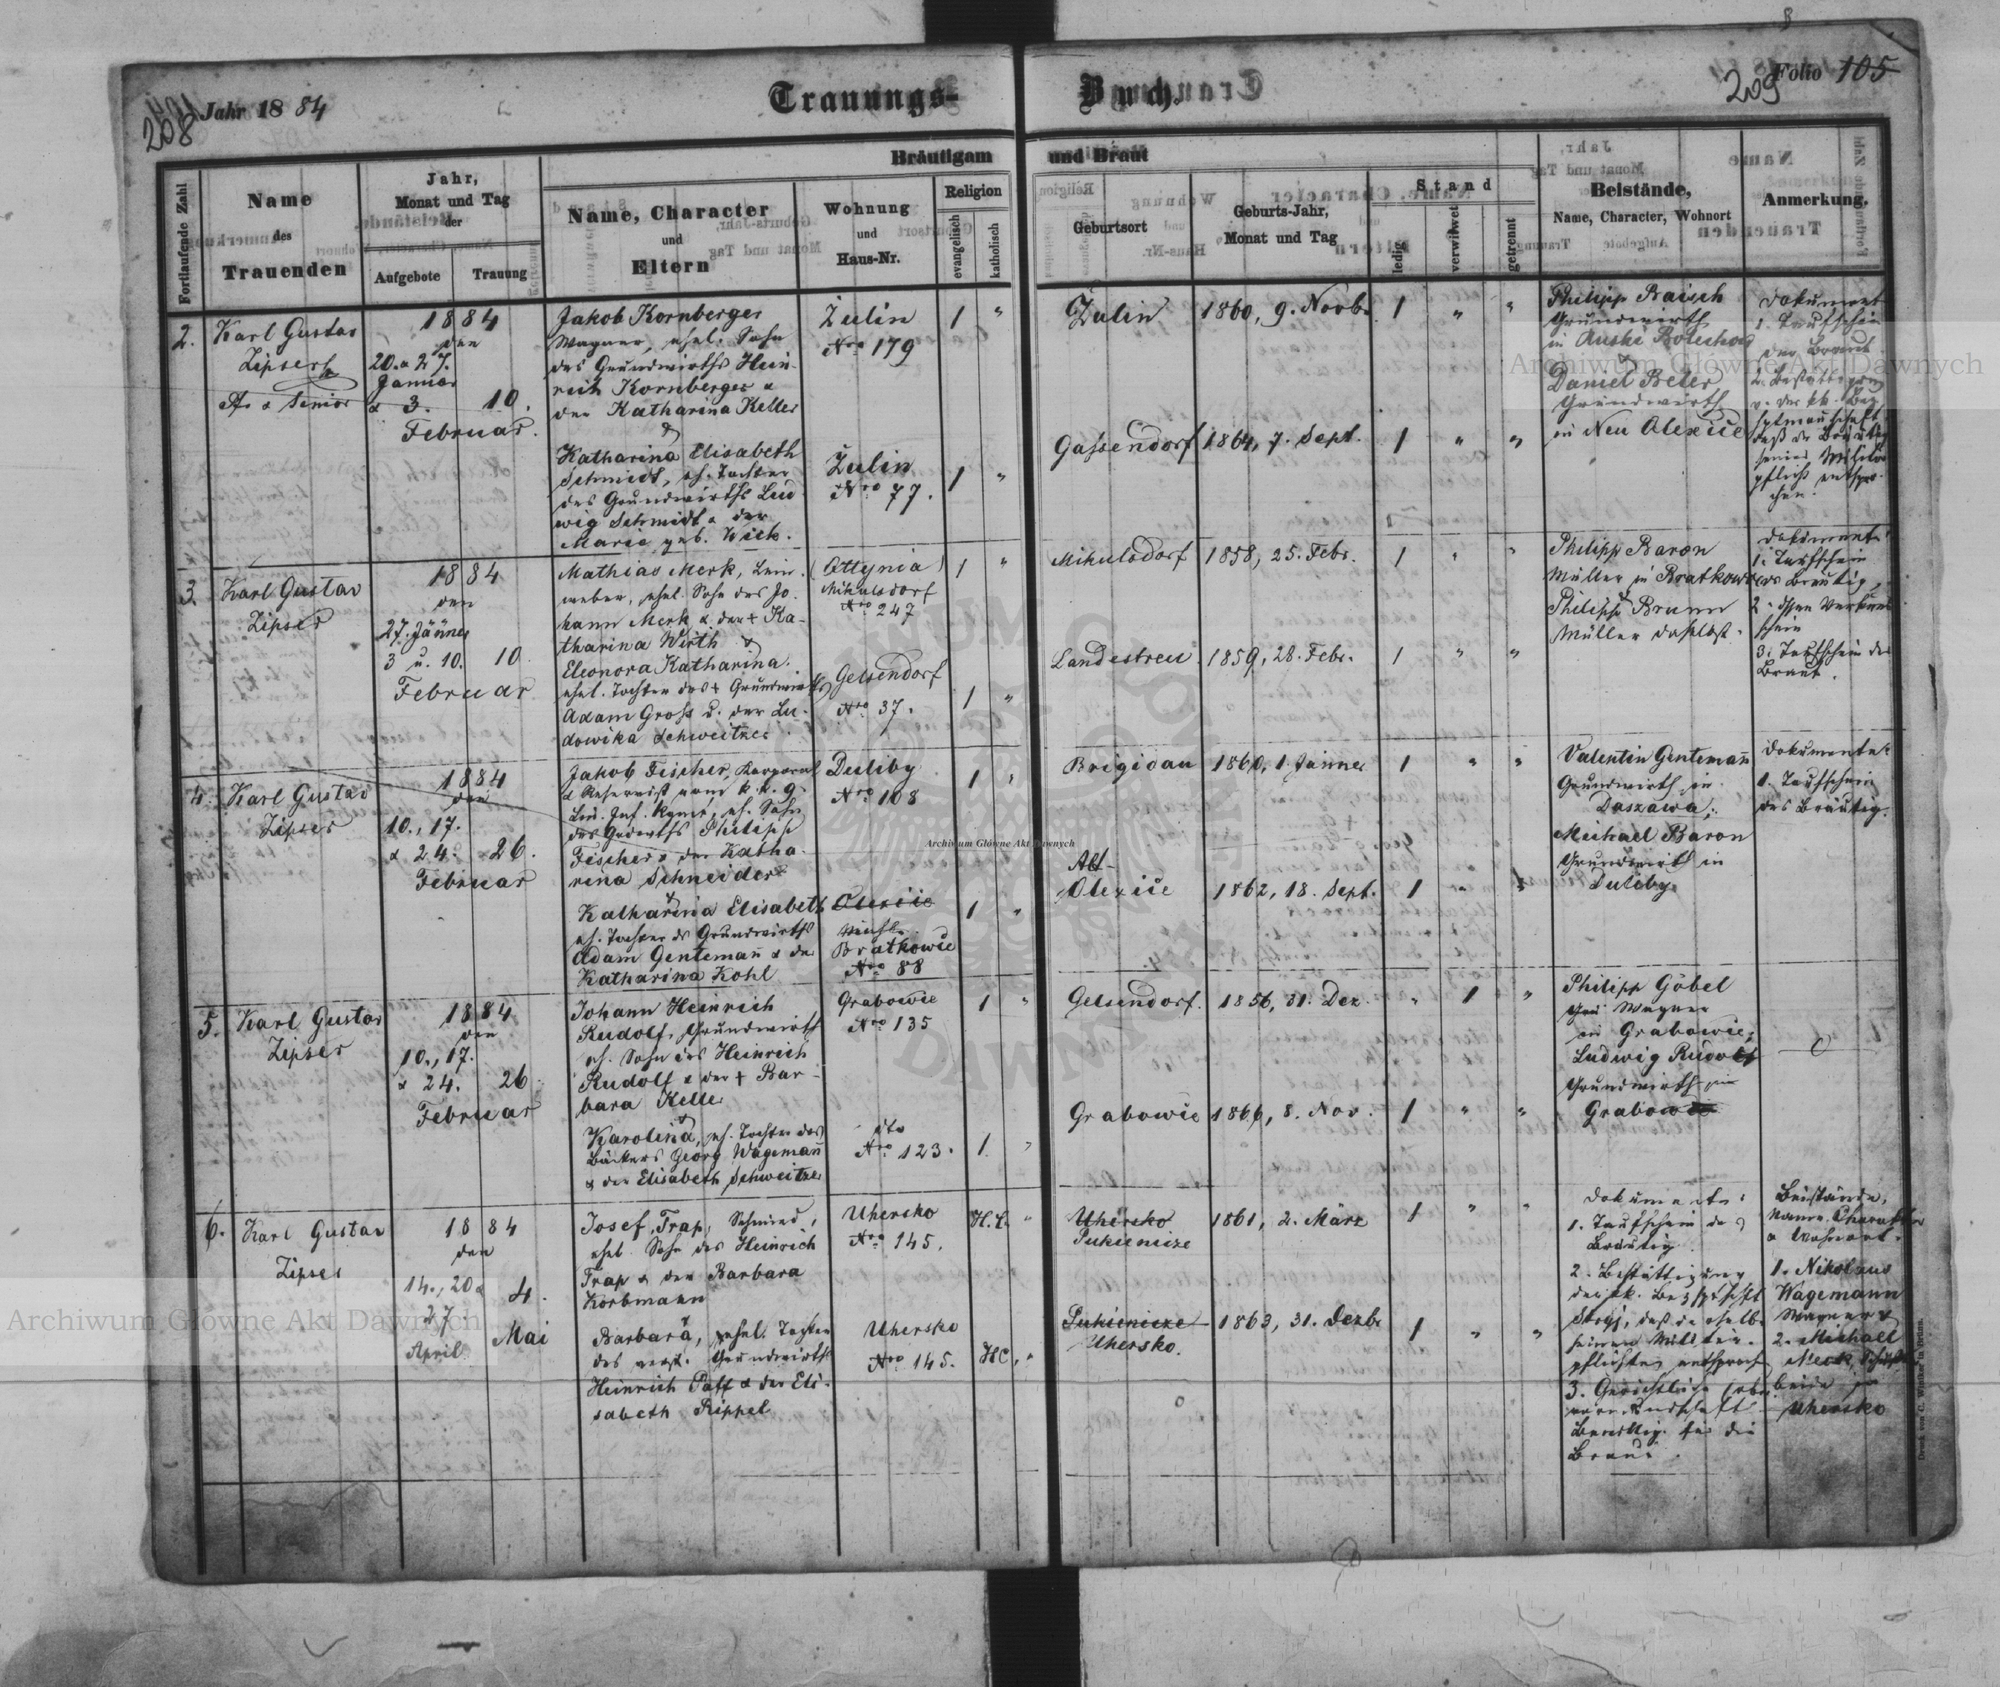 208
Jahr 18 84
Trauungs-
Buch.
209
Folio 105
Fortlaufende Zahl
Name
des
Trauenden
Jahr,
Monat und Tag
der
Aufgebote
Trauung
Bräutigam
und Braut
Name, Character
und
Eltern
Wohnung
und
Haus-Nr.
Religion
evangelisch
katholisch
Geburtsort
Geburts-Jahr,
Monat und Tag
Stand
ledig
verwitwet
getrennt
Beistände,
Name, Character, Wohnort
Anmerkung.
2.
Karl Gustav
Zipser
Pfr & Senior
1884
den
20. & 27.
Januar
& 3. 10.
Februar.
Jakob Kornberger
Wagner, ehel. Sohn
des Grundwirths Hein-
rich Kornberger &
der Katharina Keller
&
Katharina Elisabeth
Schmidt, eh. Tochter
des Grundwirths Lud
wig Schmidt & der
Marie geb. Wick.
Zulin
Nro 179
Zulin
Nro 77.
1 "
1 "
Zulin
1860, 9. Novb.
1 " "
Gassendorf
1864, 7. Sept.
1 " "
Philipp Baisch
Grundwirth
in Ruski Bolechow
&
Daniel Beler
Grundwirth
in Neu Olexice
Dokument
1. Taufschein
der Braut
3.
Karl Gustav
Zipser
1884
den
27. Jänner
3 u. 10. 10.
Februar
Mathias Merk, Lein-
weber, ehel. Sohn des Jo-
hann Merk & der + Ka-
tharina Wirth &
Eleonora Katharina
ehel. Tochter des + Grundwirths
Adam Gross u. der Lu-
dowika Schweitzer
(Ottynia)
Mikulsdorf
Nro 247
Gelsendorf
Nro 37.
1 "
1 "
Mikulsdorf
1858, 25. Febr.
1 " "
Landestreu
1859, 28. Febr.
1 " "
Philipp Baron
Müller in Bratkowce
&
Philipp Brunn
Müller daselbst.
Dokumente
1. Taufschein
des Bräutig.
schein
3. Taufschein der
Braut.
4.
Karl Gustav
Zipser
1884
den
10., 17.
& 24. 26.
Februar
Jakob Fischer, Korporal
& Reservist vom k.k. 9.
Lin. Inf. Rgmt, eh. Sohn
des Grdwrths Philipp
Fischer & der Katha-
rina Schneider
&
Katharina Elisabeth
eh. Tochter des Grundwirths
Adam Gentemañ & der
Katharina Kohl
Duliby
Nro 108
Olexiic
Bratkowie
Nro 88
1 "
1 "
Brigidau
1860, 1. Jänner
1 " "
Alt-
Olexice
1862, 18. Sept.
1 " "
Valentin Gentemañ
Grundwirth in
Daszawa;
Michael Baron
Grundwirth in
Duliby
Dokumente:
1. Taufschein
des Bräutig.
5.
Karl Gustav
Zipser
1884
den
10., 17.
& 24. 26.
Februar
Johann Heinrich
Rudolf, Grundwirth
eh. Sohn des Heinrich
Rudolf & der + Bar-
bara Keller
&
Karolina, eh. Tochter des
Bäckers Georg Wagemañ
& der Elisabeth Schweitzer
Grabowie
Nro 135
dto
Nro 123.
1 "
1 "
Gelsendorf.
1856, 31. Dez.
" 1 "
Grabowie
1866, 8. Nov.
1 " "
Philipp Göbel
Wagner
in Grabowie;
Ludwig Rudolf
Grundwirth in
Grabowie
6.
Karl Gustav
Zipser
1884
den
14., 20 &
27 4.
April Mai
Josef Trap, Schmied,
ehel. Sohn des Heinrich
Trap & der Barbara
Korbmann
&
Barbara, ehel. Tochter
des verst. Grundwirths
Heinrich Paff & der Eli-
sabeth Rippel
Uhersko
Nro 145.
Uhersko
Nro 145.
H.C. "
HC. "
Uhersko
Pukienicze
1861, 2. März
1 " "
Pukienicze
Uhersko.
1863, 31. Dezb.
1 " "
Dokumente:
1. Taufschein des
Bräutig.
2. Bestättigung
der k.k. Bezhptschft
Stryj, daß derselbe
seiner Militär-
pflichten entsproch.
Braut.
Beistände,
Name, Charakter
& Wohnort.
1. Nikolaus
Wagemann
Wagner &
2. Michael
beide in
Uhersko
Archiwum Główne Akt Dawnych
Archiwum Główne Akt Dawnych
Archiwum Główne Akt Dawnych